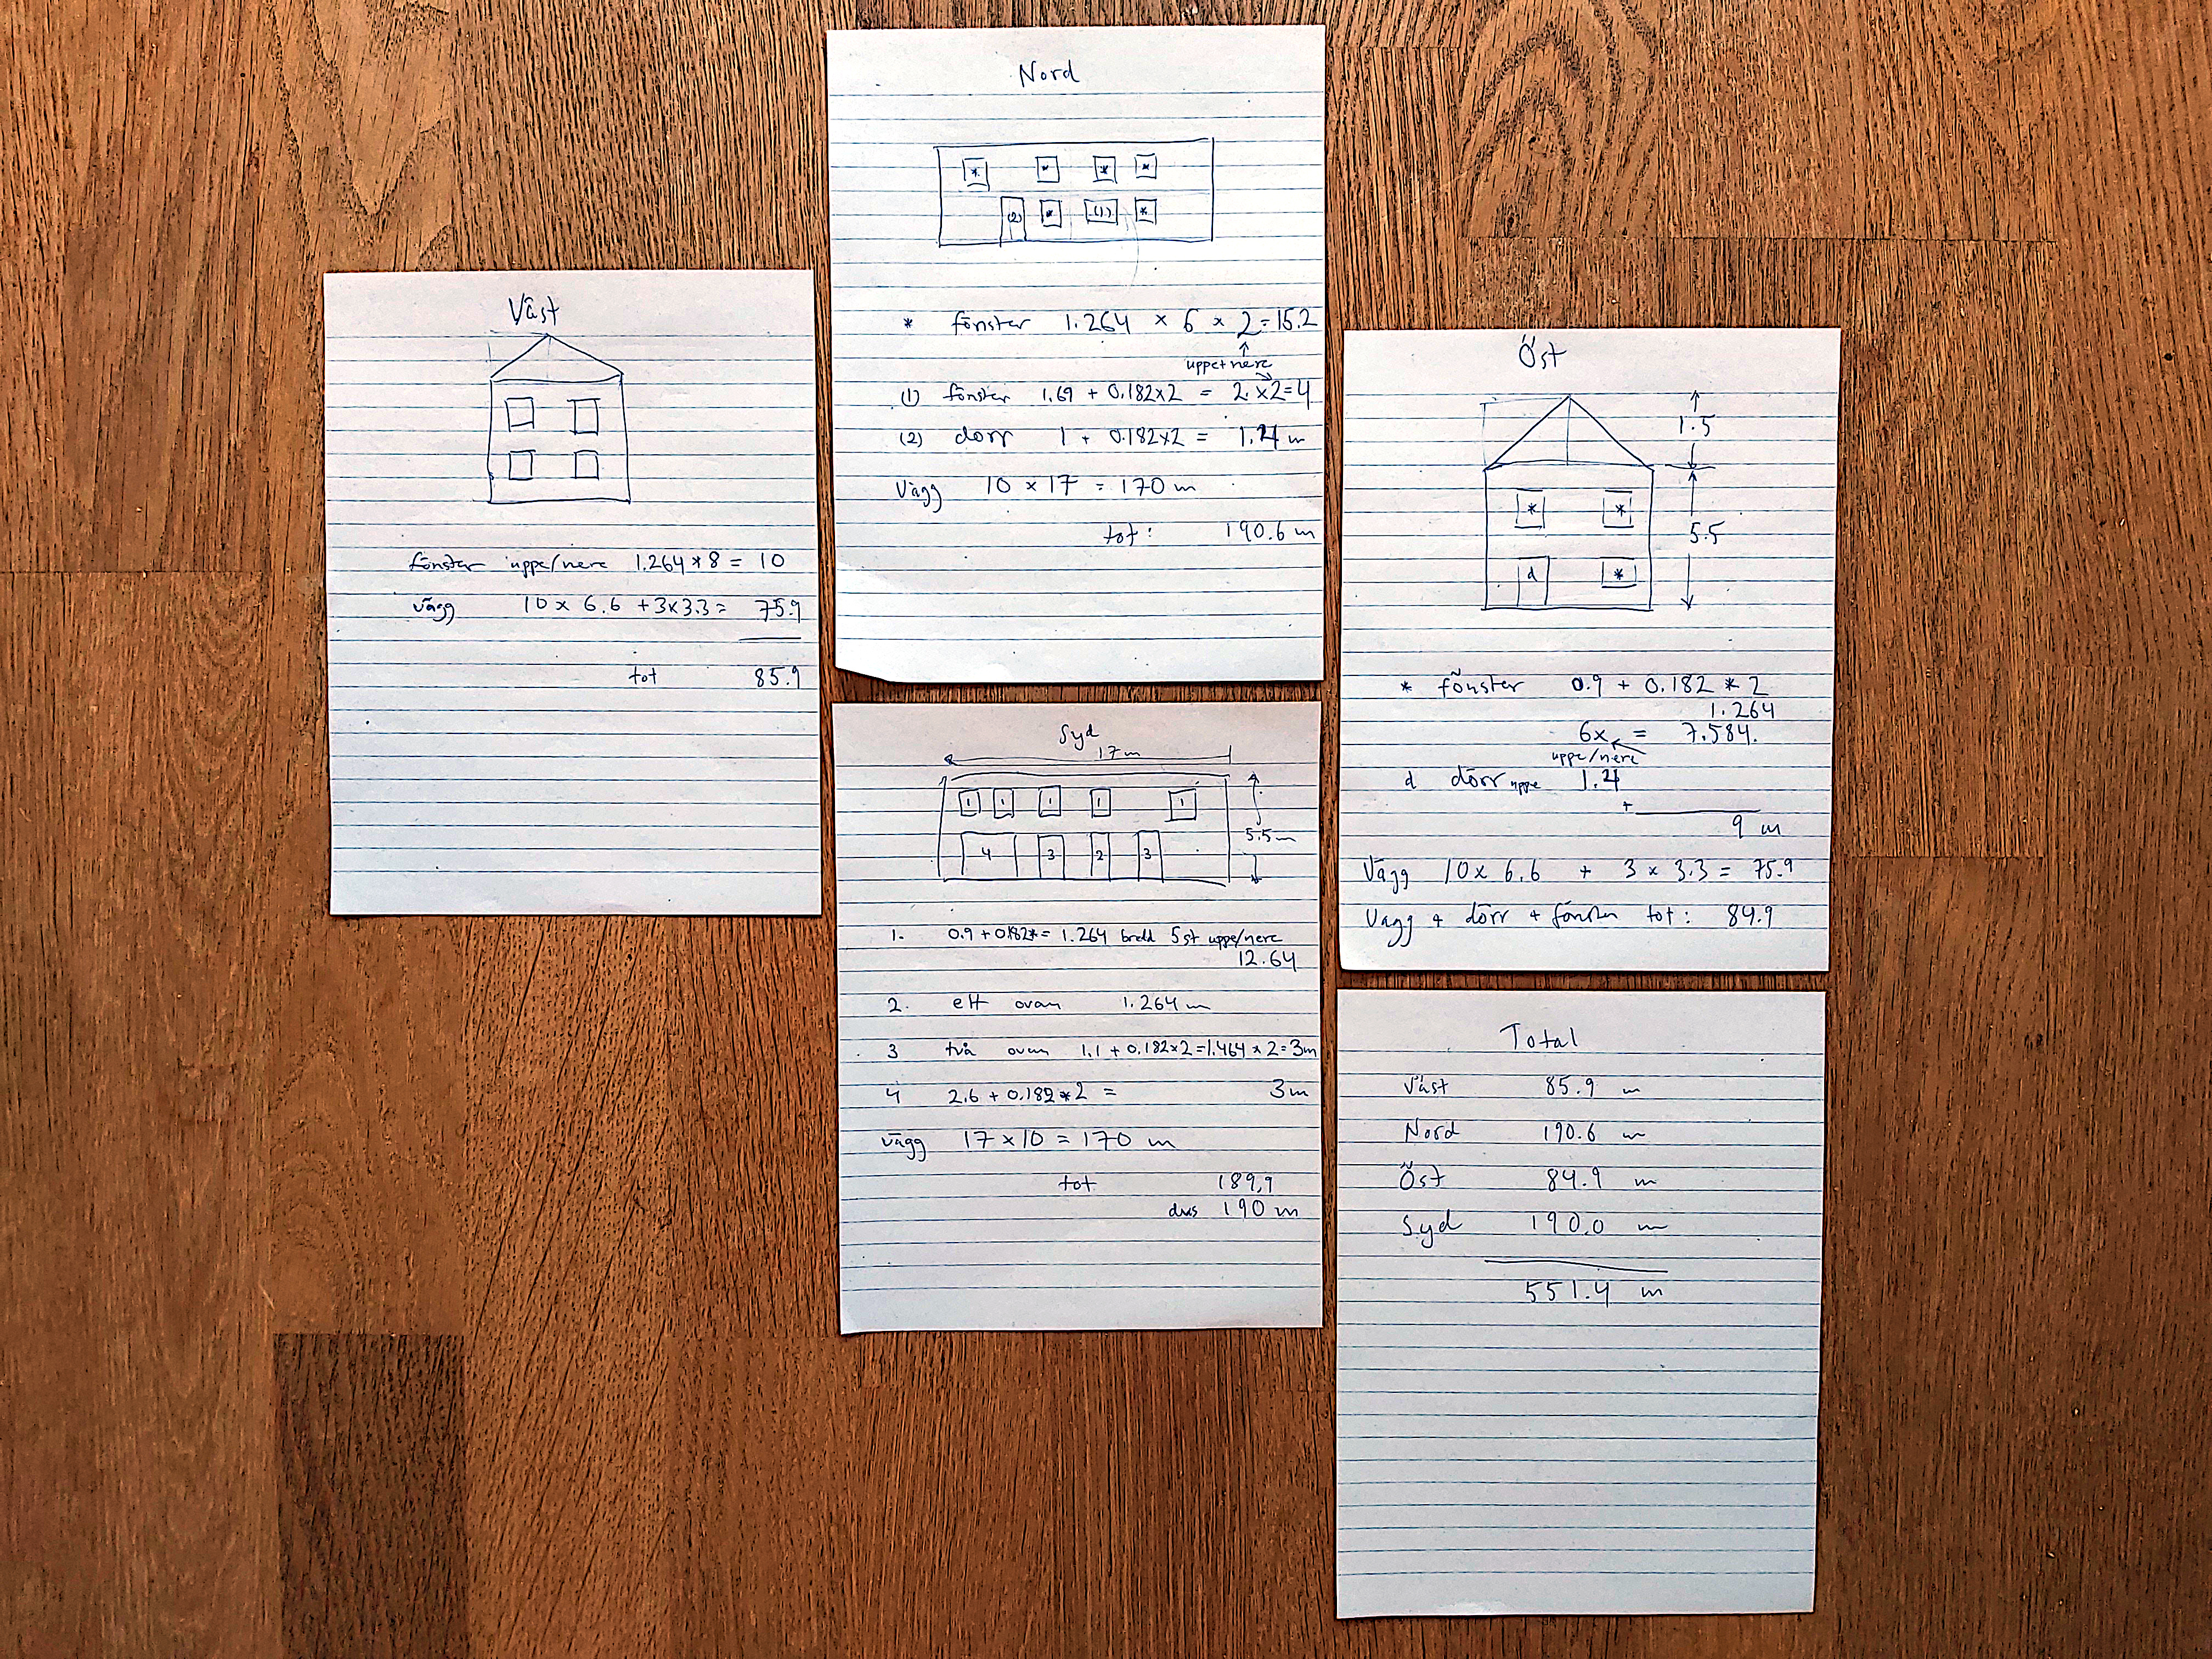 Nord
* * * *
(2) * (1) *
* fönster 1.264 × 6 × 2 = 15.2
uppe+nere
(1) fönster 1.69 + 0.182×2 = 2 ×2=4
(2) dörr 1 + 0.182×2 = 1.4 m
Vägg 10 × 17 = 170 m
tot: 190.6 m
Väst
fönster uppe/nere 1.264*8 = 10
vägg 10 × 6.6 + 3×3.3 = 75.9
tot 85.9
Öst
1.5
* *
5.5
d *
* fönster 0.9 + 0.182 * 2
1.264
6x = 7.584.
uppe/nere
d dörr uppe 1.4
+
9 m
Vägg 10× 6.6 + 3 × 3.3 = 75.9
Vägg + dörr + fönster tot: 84.9
Syd
17m
1 1 1 1 1
5.5m
4 3 2 3
1. 0.9+0.182*= 1.264 bredd 5st uppe/nere
12.64
2. ett ovan 1.264 m
3 två ovan 1.1 + 0.182×2=1.464 × 2=3m
4 2.6 + 0.182*2 = 3m
vägg 17 × 10 = 170 m
tot 189,9
dvs 190 m
Total
Väst 85.9 m
Nord 190.6 m
Öst 84.9 m
Syd 190.0 m
551.4 m